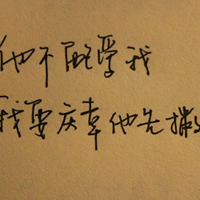 他不爱我
我要庆幸他先撒